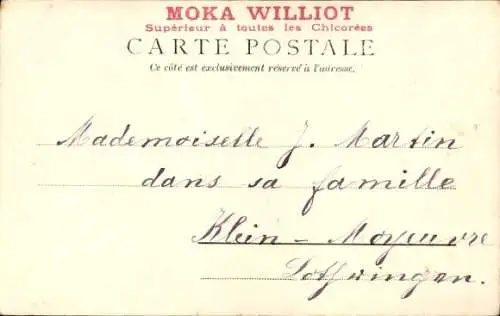 MOKA WILLIOT
Supérieur à toutes les Chicorées
CARTE POSTALE
Ce côté est exclusivement réservé à l'adresse.
Mademoiselle J. Martin
dans sa famille
Klein - Moyeuvre
Lothringen.